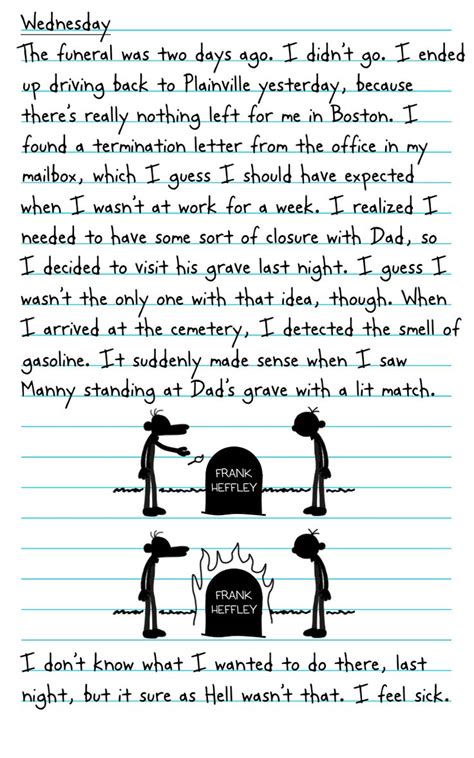 Wednesday
The funeral was two days ago. I didn't go. I ended
up driving back to Plainville yesterday, because
there's really nothing left for me in Boston. I
found a termination letter from the office in my
mailbox, which I guess I should have expected
when I wasn't at work for a week. I realized I
needed to have some sort of closure with Dad, so
I decided to visit his grave last night. I guess I
wasn't the only one with that idea, though. When
I arrived at the cemetery, I detected the smell of
gasoline. It suddenly made sense when I saw
Manny standing at Dad's grave with a lit match.
FRANK
HEFFLEY
FRANK
HEFFLEY
I don't know what I wanted to do there, last
night, but it sure as Hell wasn't that. I feel sick.